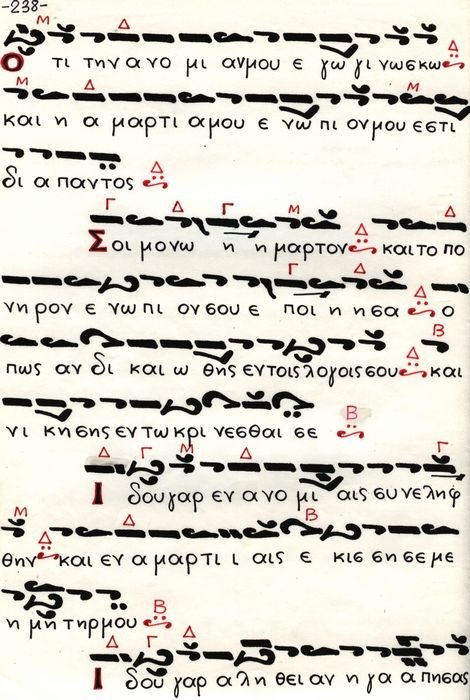 -238-
Ο τι την α νο μι αν μου ε γω γι νωσκω
και η α μαρτι α μου ε νω πι ον μου εστι
δι α παντος
Σοι μο νω η η μαρτον και το πο
νη ρον ε νω πι ον σου ε ποι η η σα ο
πως αν δι και ω θης εν τοις λογοις σου και
νι κη σης εν τω κρι νεσθαι σε
Ι δου γαρ εν α νο μι αις συνεληφ
θην και εν α μαρτι ι αις ε κισ ση σε με
η μη τηρ μου
Ι δου γαρ α λη θει αν η γα α πησας